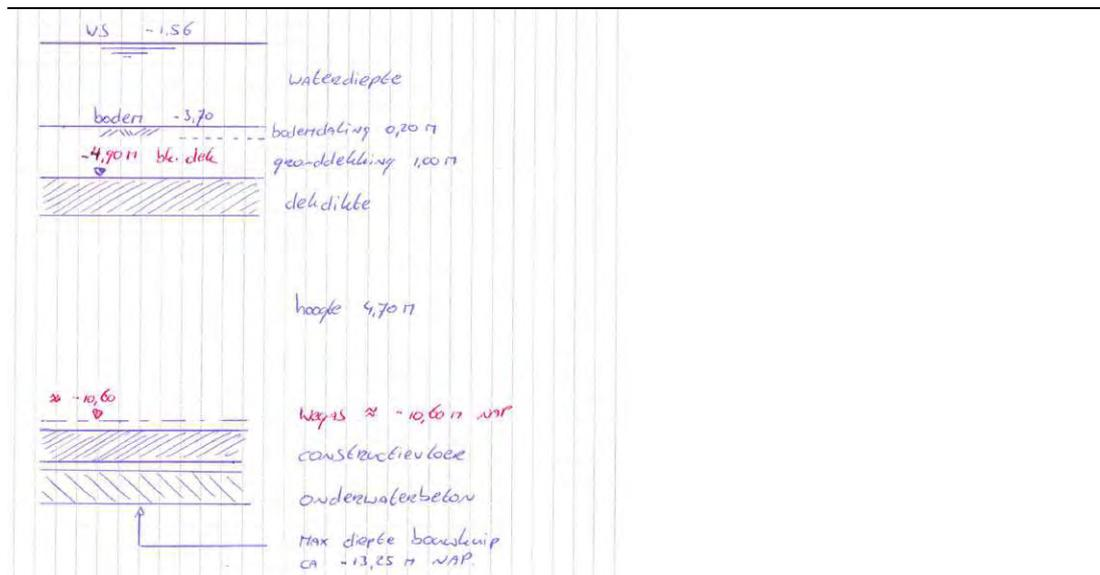 WS -1.56
waterdiepte
bodem -3,70
bodemdaling 0,20 m
-4,90 m bk. dek
gronddekking 1,00 m
dekdikte
hoogte 4,70 m
≈ -10,60
Wegas ≈ -10,60 m NAP
constructievloer
onderwaterbeton
Max diepte bouwkuip
ca -13,25 m NAP.